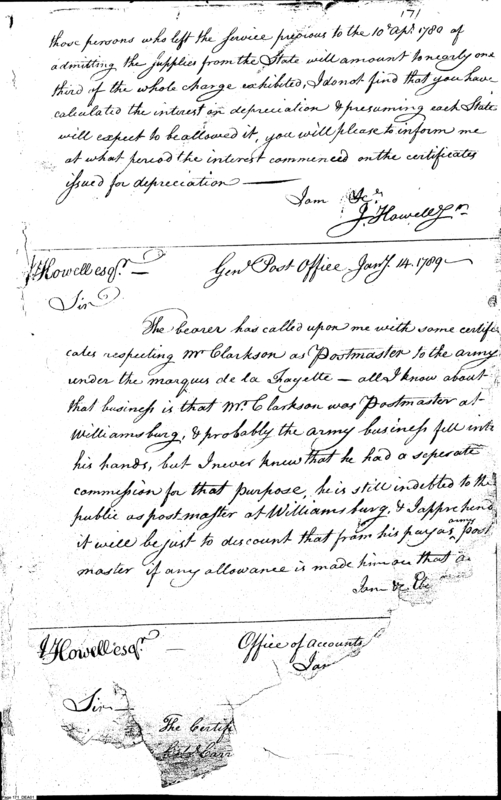 171
those persons who left the service previous to the 10th Apl. 1780 of
admitting the supplies from the State will amount to nearly one
third of the whole charge exhibited, I do not find that you have
calculated the interest on depreciation & presuming each State
will expect to be allowed it, you will please to inform me
at what period the interest commenced on the certificates
issued for depreciation —
I am &c.
J. Howell Jr.
J Howell esqr. — Genl. Post Office Jany. 14. 1789 —
Sir
The bearer has called upon me with some certifi
cates respecting Mr. Clarkson as Postmaster to the army
under the marquis de la Fayette — all I know about
that business is that Mr. Clarkson was Postmaster at
Williamsburg, & probably the army business fell into
his hands, but I never knew that he had a seperate
commission for that purpose, he is still indebted to the
public as postmaster at Williamsburg, & I apprehend
it will be just to discount that from his pay as army post
master if any allowance is made him on that a
I am & Eb
J Howell esqr. — Office of accounts
Jan
Sir
The Certif